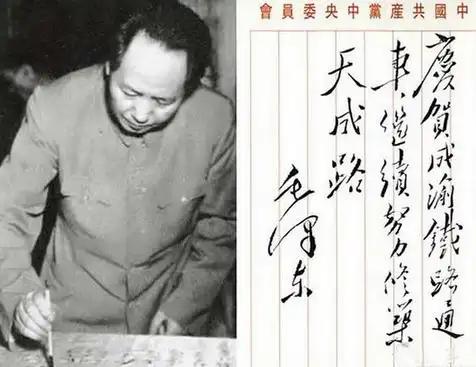 中國共産黨中央委員會
慶賀成渝鐵路通
車,继續努力修築
天成路
毛泽东